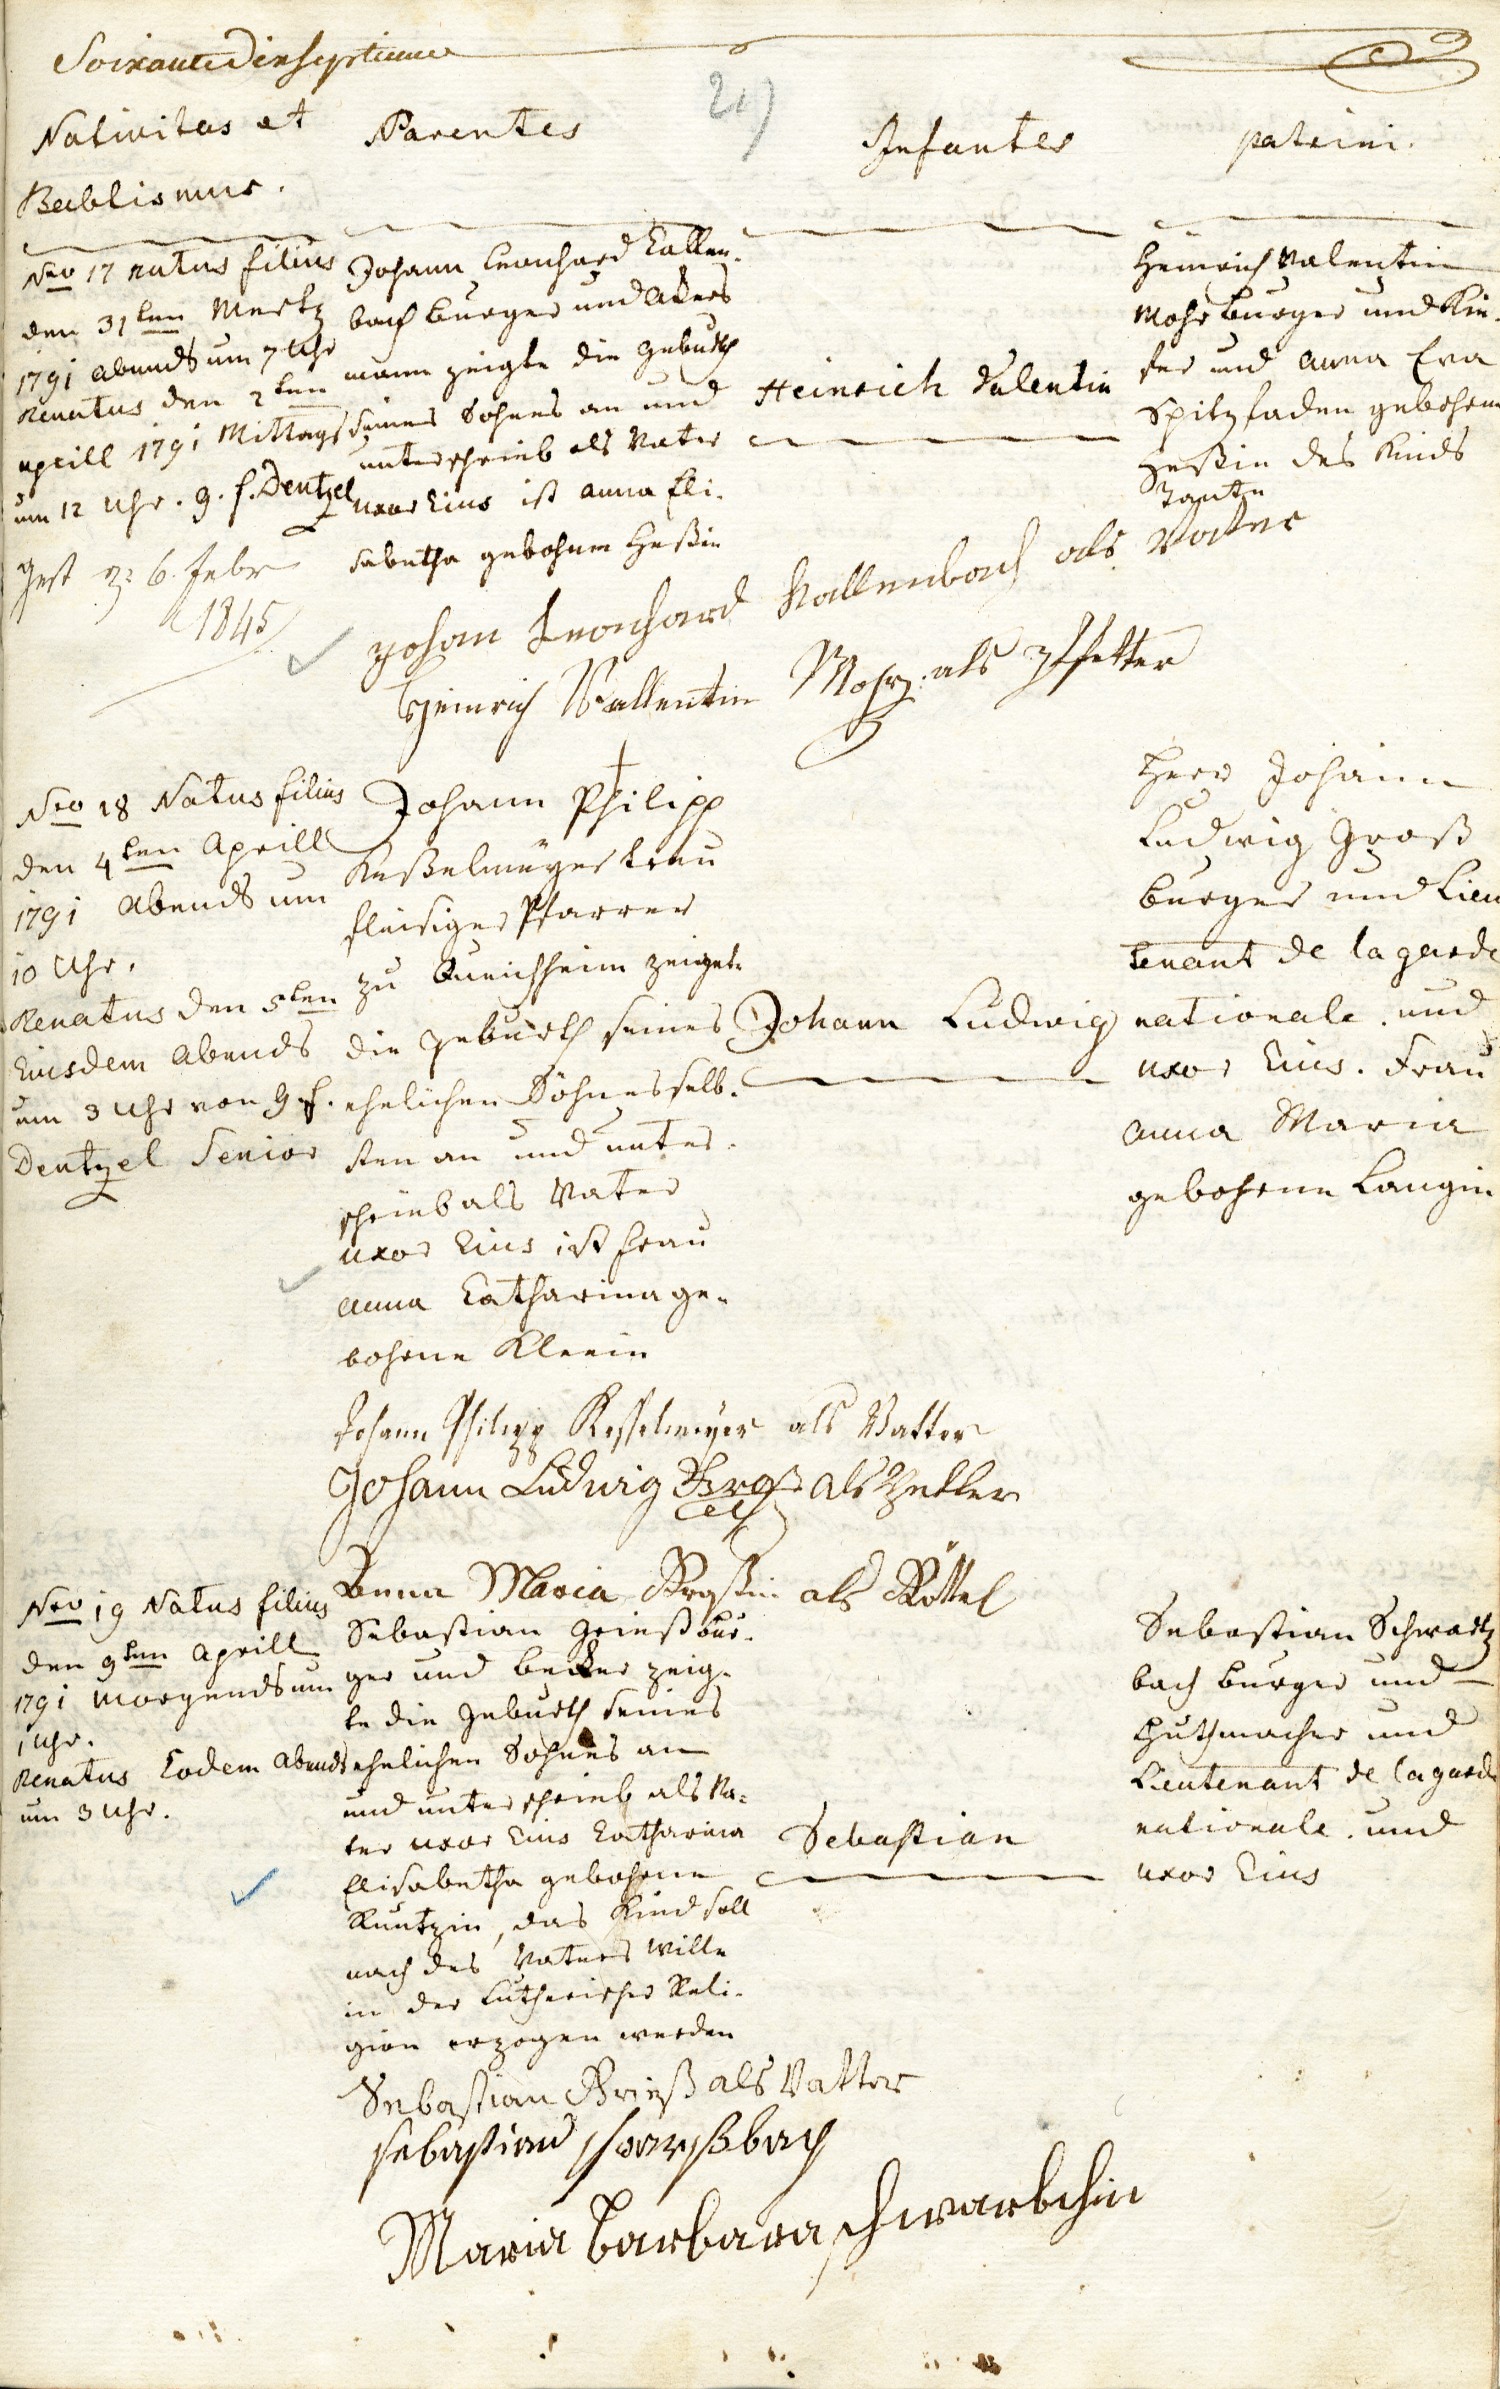 Soixante Dixseptieme
Nativitas et
Babtismus.
Parentes
Infantes
patrini.
Nro 17 natus filius
den 31ten Mertz
1791 abends um 7 Uhr
Renatus den 2ten
aprill 1791 Mittags
um 12 Uhr. g. f. Dentzel
gest. 6. Febr
1845
Johann Leonhard Kallen-
bach burger und Akers
mann zeigte die geburth
seines Sohnes an und
unterschrieb als Vater
uxor Eius ist anna Eli-
sabetha gebohrne Heßin
Heinrich Valentin
Heinrich Valentin
Mohr burger und Kie-
fer und anna Eva
Spitzfaden gebohrne
Heßin des Kinds
Tante
Johan Leonhard Kallenbach als Vatter
Heinrich Vallentin Mohr als Pfetter
Nro 18 Natus filius
den 4ten Aprill
1791 abends um
10 Uhr.
Renatus den 5ten
Eiusdem abends
um 3 Uhr von g. f.
Dentzel Senior
Johann Philipp
Keßelmeyer treu
fleisiger Pfarrer
zu Queichheim zeiget
die geburth seines
ehelichen Sohnes selb-
sten an und unter-
schrieb als Vater
uxor Eius ist frau
anna Catharina ge-
bohrne Kleein
Johann Ludwig
Herr Johann
Ludwig Groß
burger und Lieu
tenant de la garde
nationale. und
uxor Eius. Frau
anna Maria
gebohrne Langin
Johann Philipp Kesselmeyer als Vatter
Johann Ludwig Groß als Petter
Anna Maria Großin als Göttel
Nro 19 Natus filius
den 9ten Aprill
1791 morgends um
1 Uhr.
Renatus Eodem abends
um 3 Uhr.
Sebastian Grieß bur-
ger und becker zeig-
te die geburth seines
ehelichen Sohnes an
und unterschrieb als Va-
ter uxor Eius Catharina
Elisabetha gebohrne
Kuntzin, das Kind soll
nach des Vaters Wille
in der Lutherischer Reli-
gion erzogen werden
Sebastian
Sebastian Schwartz
bach burger und
Huthmacher und
Lieutenant de la garde
nationale. und
uxor Eius
Sebastian Grieß als Vatter
sebastian schwarßbach
Maria barbara schwarbchin